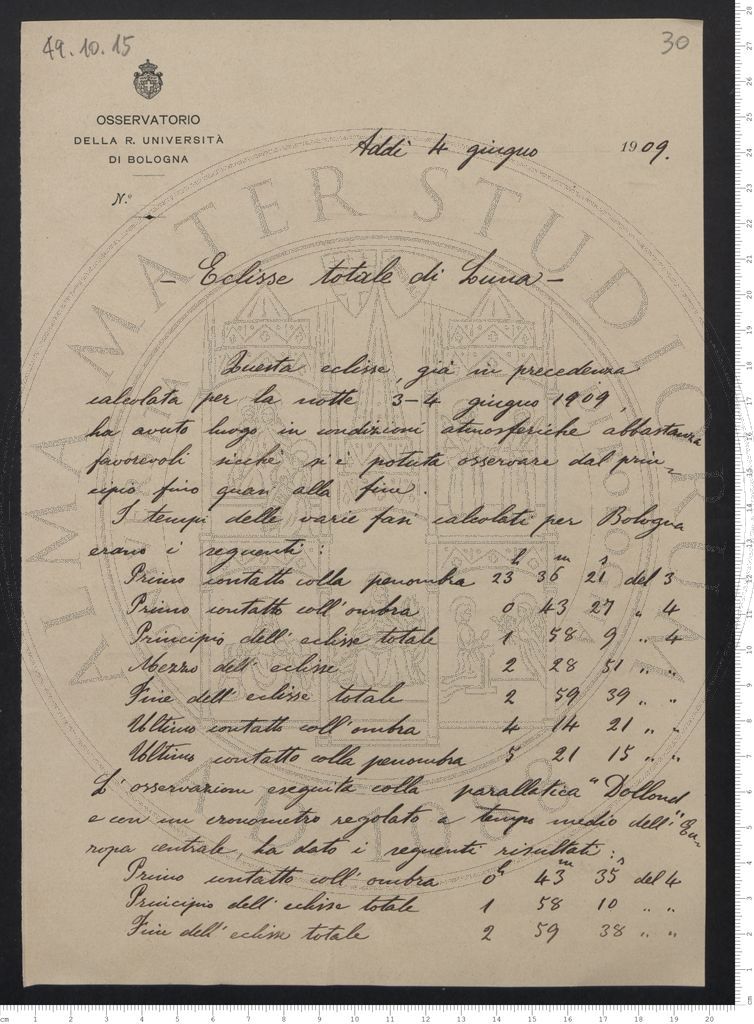 49.10.15
30
OSSERVATORIO
DELLA R. UNIVERSITÀ
DI BOLOGNA
N.º
Addì 4 giugno 1909.
- Eclisse totale di Luna -
Questa eclisse, già in precedenza
calcolata per la notte 3-4 giugno 1909,
ha avuto luogo in condizioni atmosferiche abbastanza
favorevoli sicchè si è potuta osservare dal prin-
cipio fino quasi alla fine.
I tempi delle varie fasi calcolati per Bologna
erano i seguenti:
h m s
Primo contatto colla penombra 23 36 21 del 3
Primo contatto coll'ombra 0 43 27 " 4
Principio dell'eclisse totale 1 58 9 " 4
Mezzo dell'eclisse 2 28 51 " "
Fine dell'eclisse totale 2 59 39 " "
Ultimo contatto coll'ombra 4 14 21 " "
Ultimo contatto colla penombra 5 21 15 " "
L'osservazione eseguita colla parallatica "Dollond"
e con un cronometro regolato a tempo medio dell'Eu-
ropa centrale, ha dato i seguenti risultati:
h m s
Primo contatto coll'ombra 0 43 35 del 4
Principio dell'eclisse totale 1 58 10 " "
Fine dell'eclisse totale 2 59 38 " "
ALMA MATER STUDIORUM